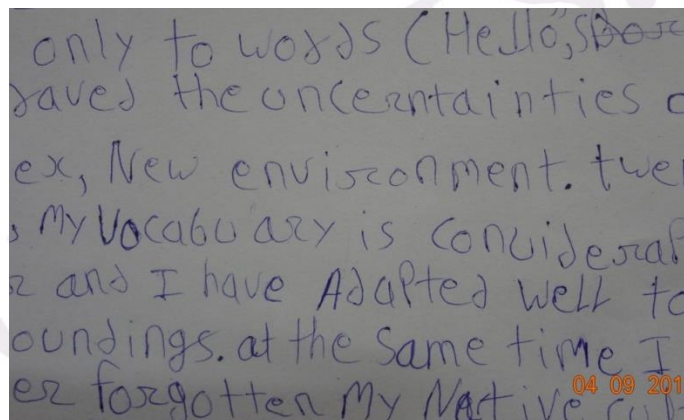 only to words (Hello,
the uncerntainties
ex, New enviroment.
My Vocabuary is
and I have Adapted well to
oundings. at the same time I
forgotten My Native
04 09 201